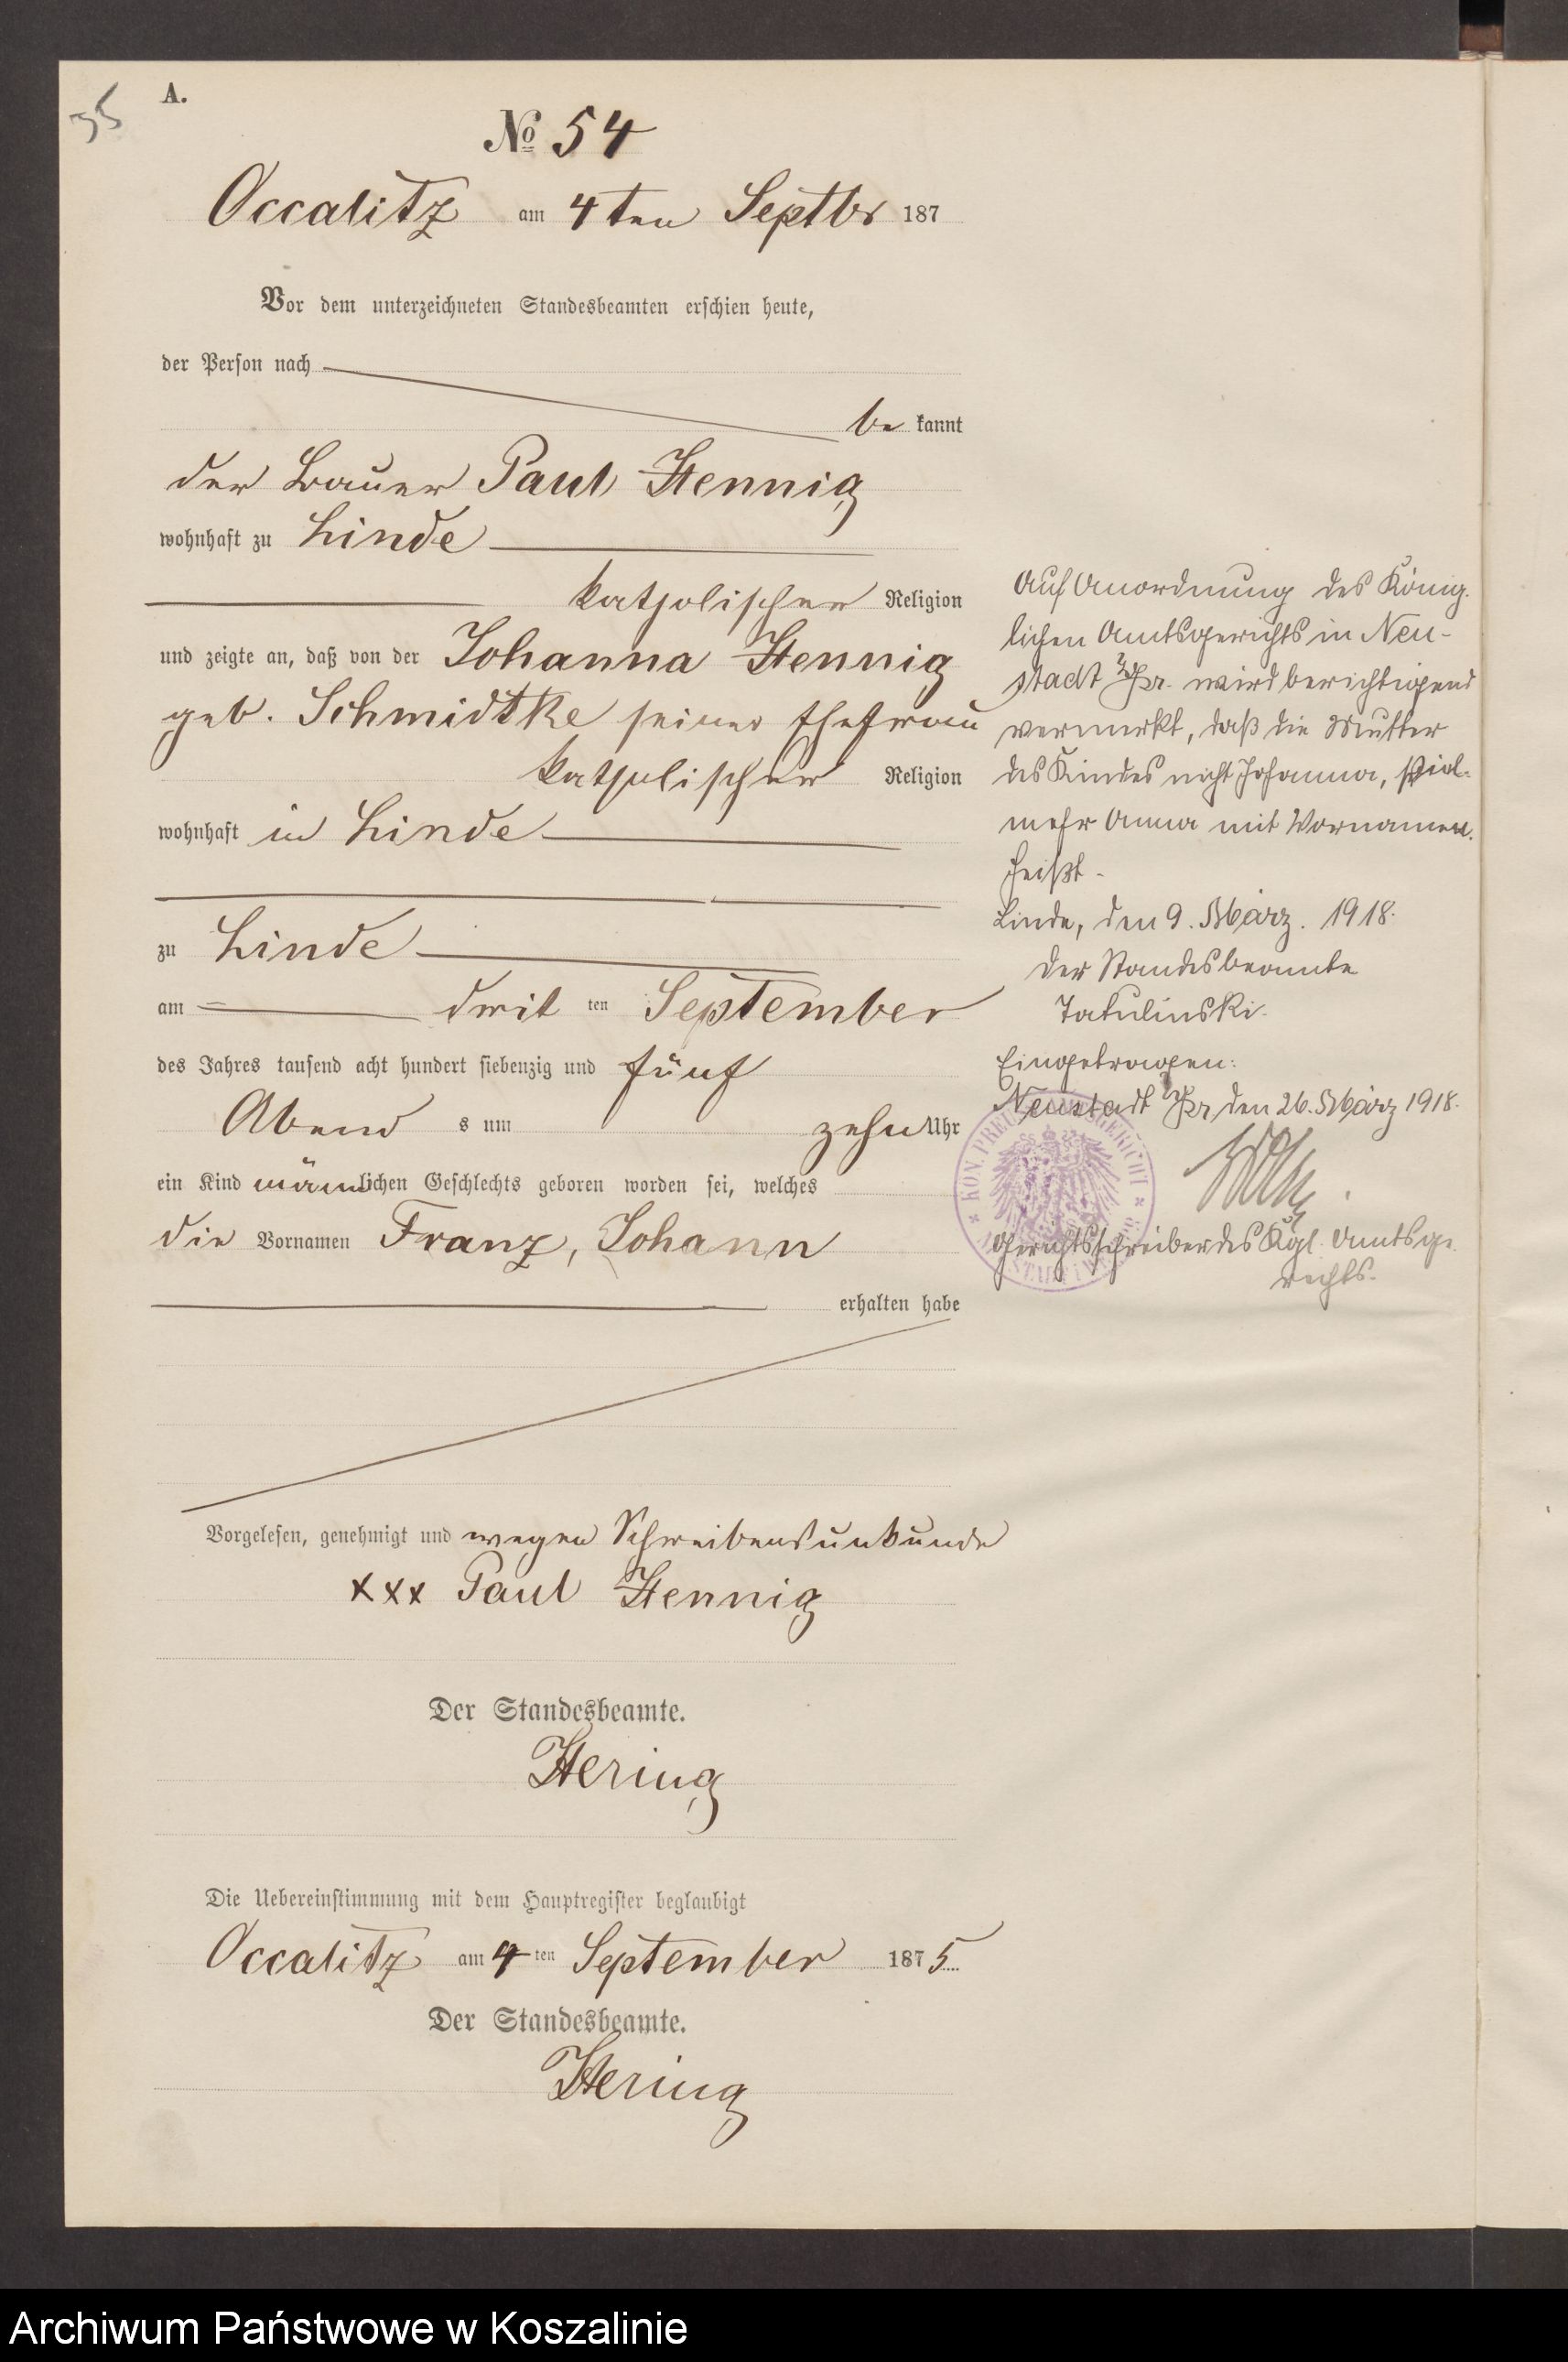 35
A.
№ 54
Occalitz am 4ten Septbr 187
Vor dem unterzeichneten Standesbeamten erschien heute,
der Person nach
be kannt
der Bauer Paul Hennig
wohnhaft zu Linde
katholischer Religion
und zeigte an, daß von der Johanna Hennig
geb. Schmidtke seiner Ehefrau
katholischer Religion
wohnhaft in Linde
zu Linde
am drit ten September
des Jahres tausend acht hundert siebenzig und fünf
Abend s um zehn Uhr
ein Kind männlichen Geschlechts geboren worden sei, welches
die Vornamen Franz, Johann
erhalten habe
Vorgelesen, genehmigt und wegen Schreibensunkunde
xxx Paul Hennig
Der Standesbeamte.
Hering
Die Uebereinstimmung mit dem Hauptregister beglaubigt
Occalitz am 4 ten September 1875
Der Standesbeamte.
Hering
Auf Anordnung des König-
lichen Amtsgerichts in Neu-
stadt Wpr. wird berichtigend
vermerkt, daß die Mutter
des Kindes nicht Johanna, viel-
mehr Anna mit Vornamen
heißt.
Linde, den 9. März. 1918.
Der Standesbeamte
Tatulinski.
Eingetragen:
Neustadt Wpr, den 26. März 1918.
Gerichtsschreiber des Kgl. Amtsge
richts.
Archiwum Państwowe w Koszalinie